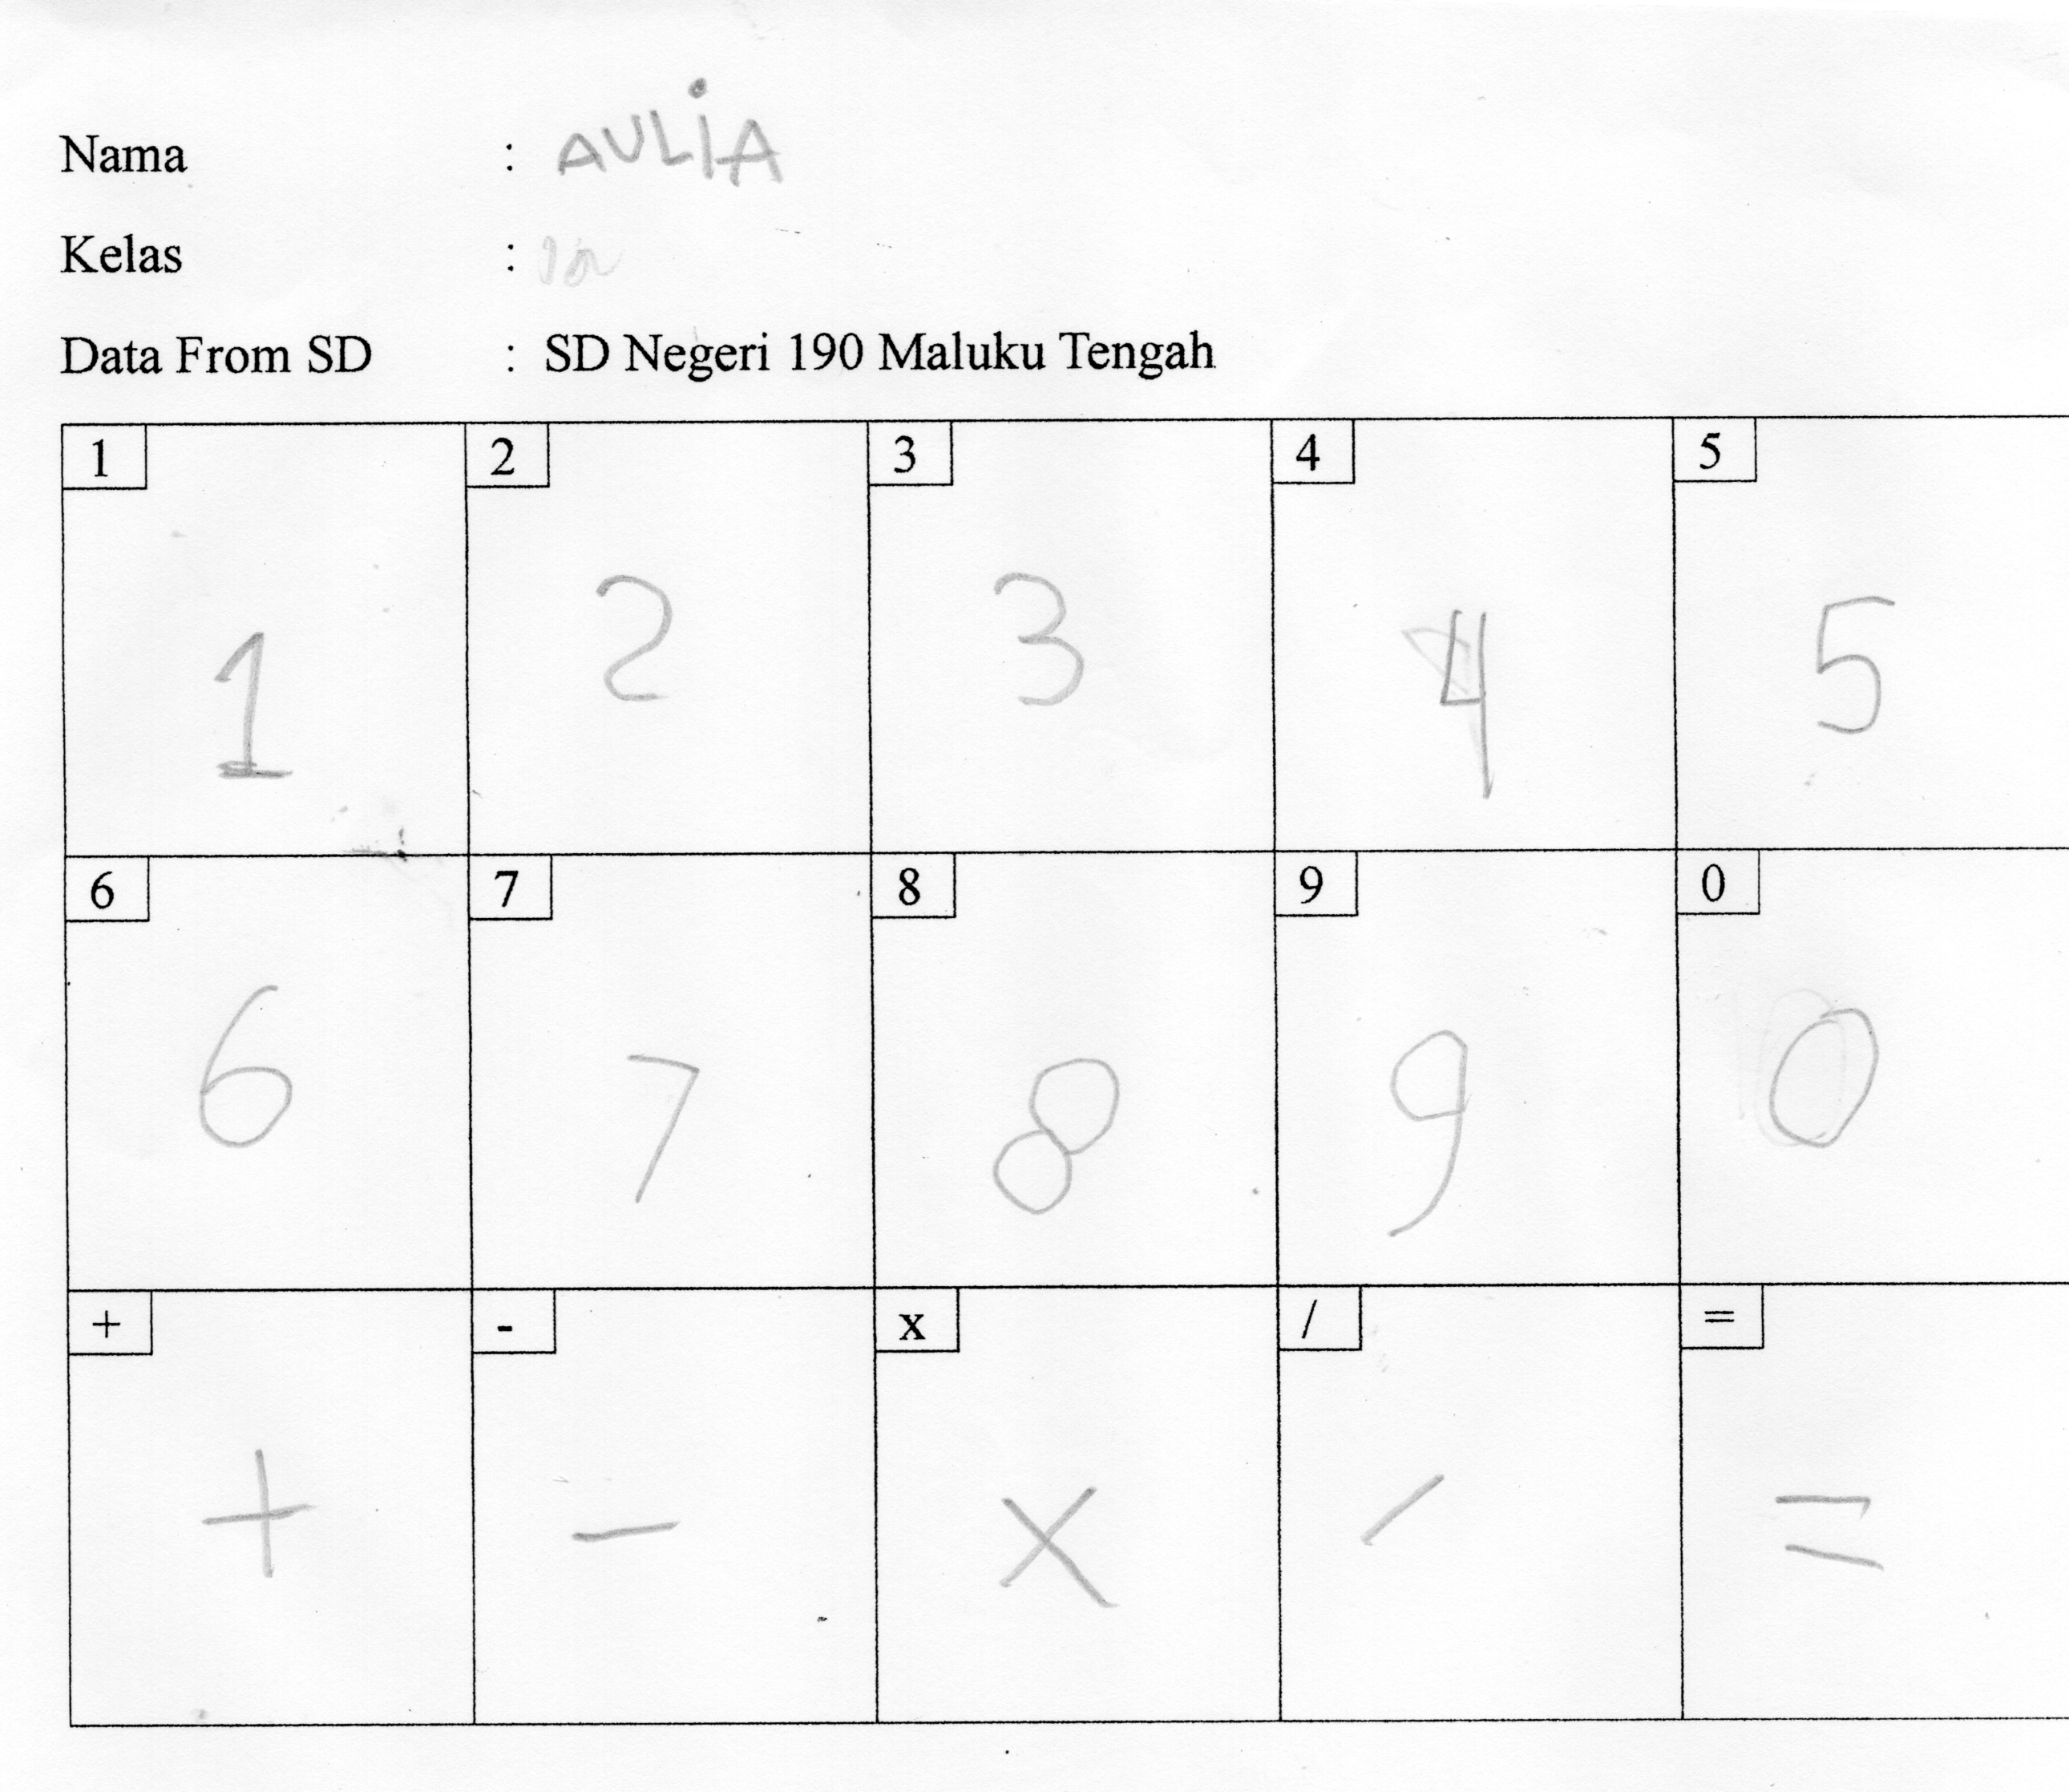 Nama : AULiA
Kelas : 1a
Data From SD : SD Negeri 190 Maluku Tengah
1 2 3 4 5
1 2 3 4 5
6 7 8 9 0
6 7 8 9 0
+ - x / =
+ - x / =